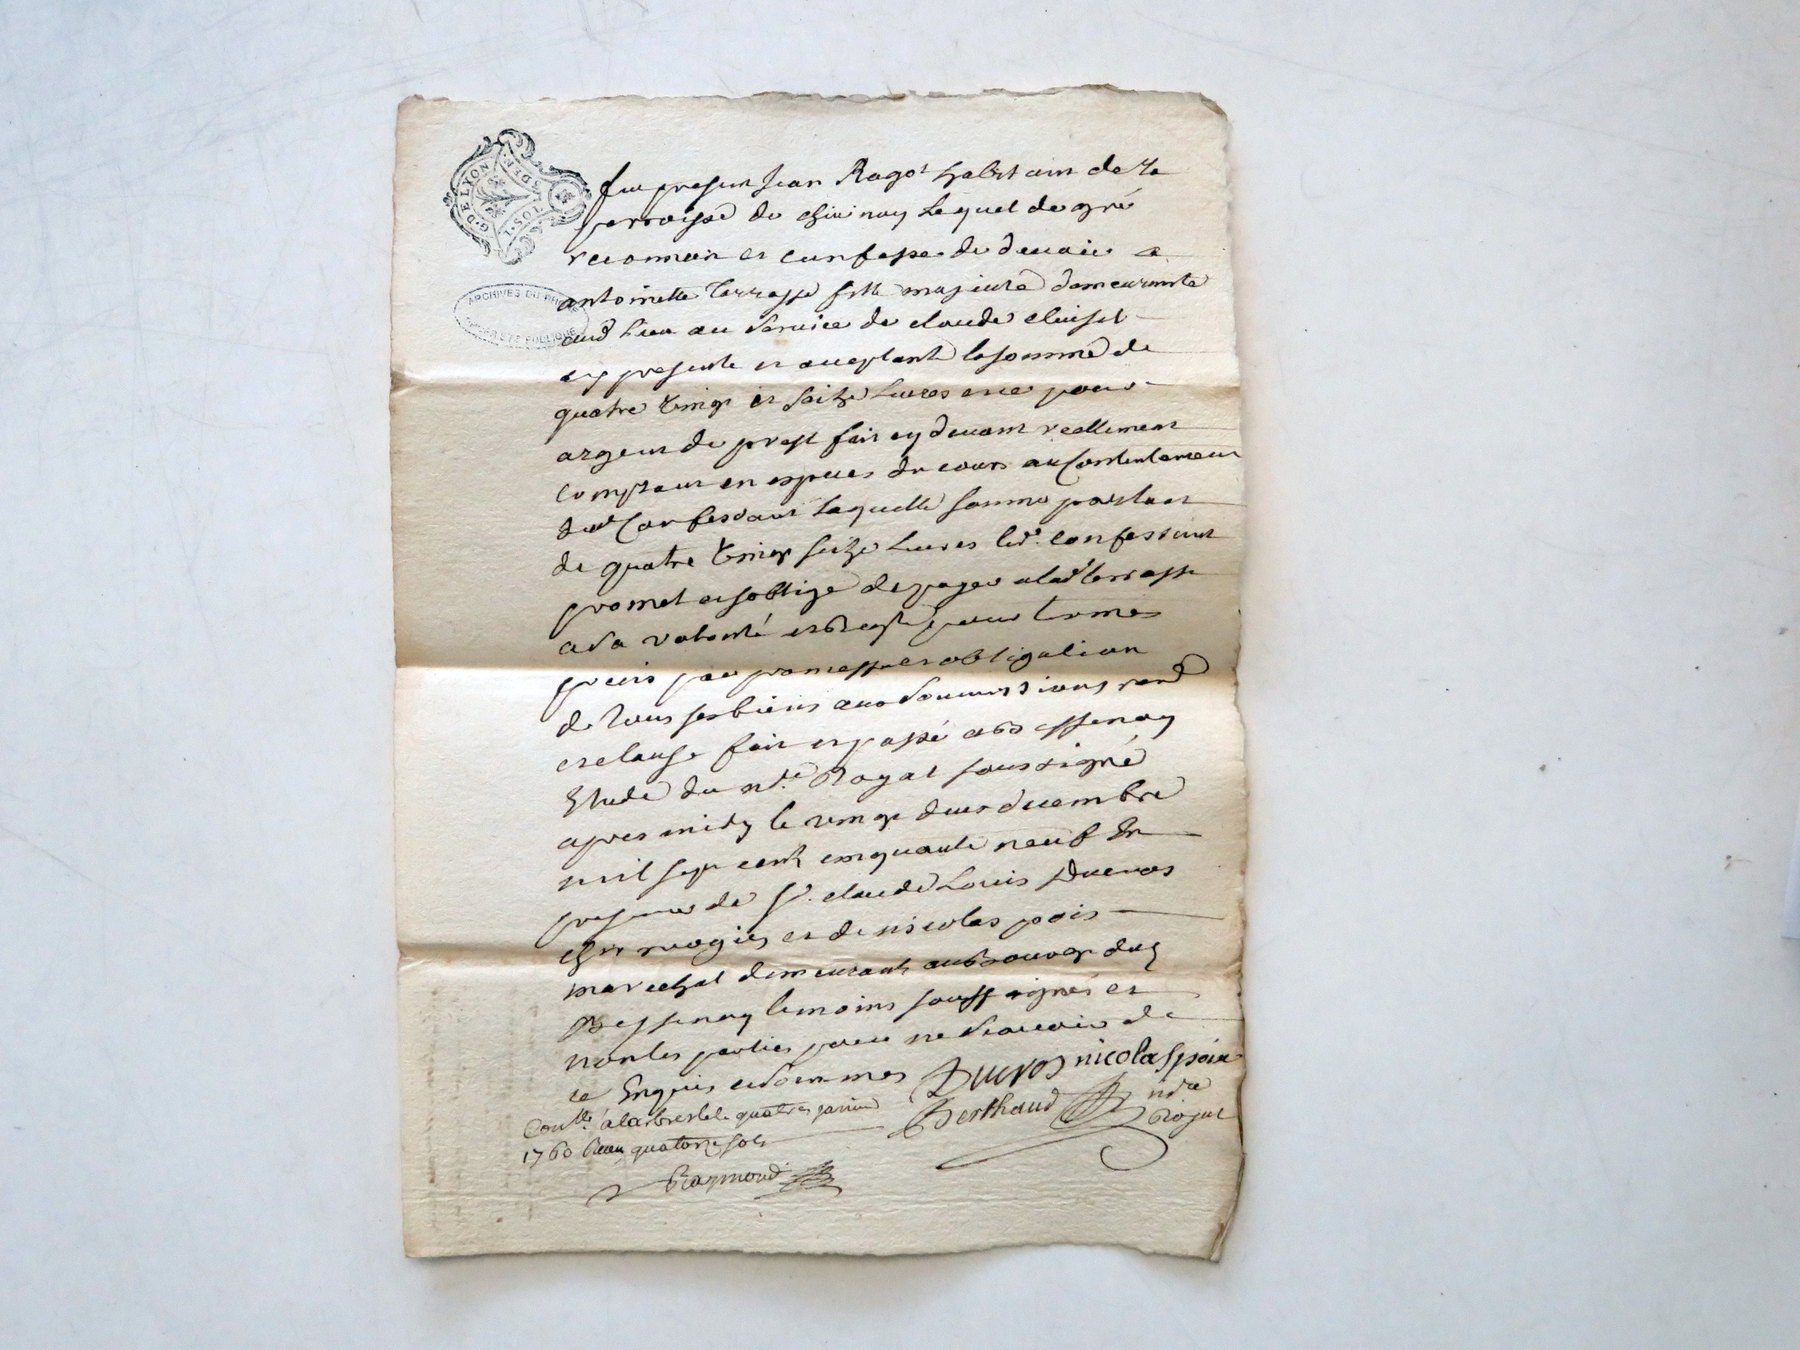 G. DE LYON
SOLS
DEN.
ARCHIVES DU RHONE
PUBLIQUE
fut present Jean Ragot habitant de la
parroisse de chevinay Lequel de gré
reconnoit et confesse de devoir a
antoinette terrasse fille majeure demeurante
aud lieu au service de claude cluset
cy presente et acceptante la somme de
quatre vingt et seize Livres et ce pour
argent de prest fait cy devant reellement
comptant en especes du cours au Contentement
dud Confessant laquelle somme partant
de quatre vingt seize Livres led. confessant
promet et soblige de payer a lad terrasse
a sa volonté et pour termes
precis par promesse et obligation
de tous ses biens aux soumissions rend
et clause fait et passé a Bessenay
Etude du nre. Rogat soussigné
apres midy le vingt deux decembre
mil sept cent cinquante neuf En
presence de Sr. claude Louis Ducros
chirurgien et de nicolas poix
marechal demeurants au Bourg dud
Bessenay temoins soussignés et
non les parties pour ne sçavoir de
ce Enquis et sommés Ducros nicolas poix
Berthaud nre
Rogat
Conllé à larbresle le quatre janvier
1760 Reçu quatorze sols
Raymond